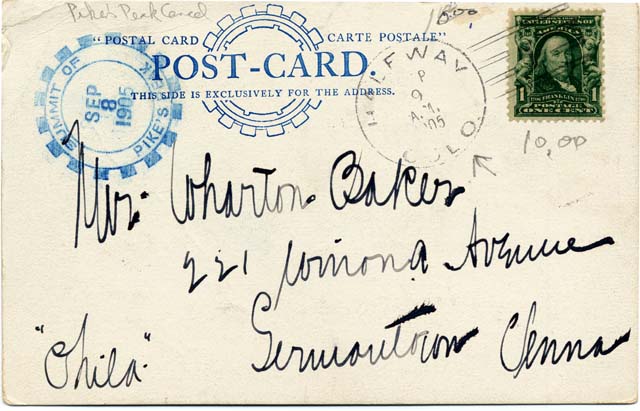 Pike's Peak Cancel
10.00
"POSTAL CARD CARTE POSTALE"
POST-CARD.
THIS SIDE IS EXCLUSIVELY FOR THE ADDRESS.
SUMMIT OF PIKE'S PEAK
SEP
8
1905
HALFWAY
P
9
A.M.
'05
COLO.
1 FRANKLIN 1
POSTAGE
ONE CENT
10,00
Mrs. Wharton Baker
221 Winona Avenue
Germantown Penna
"Phila"